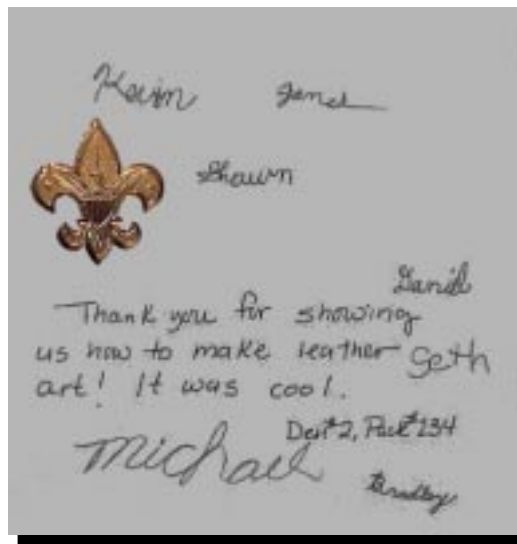 Kevin
Shawn
Daniel
Thank you for showing
us how to make leather Seth
art! It was cool.
Den #2, Pack #134
Michael
Bradley